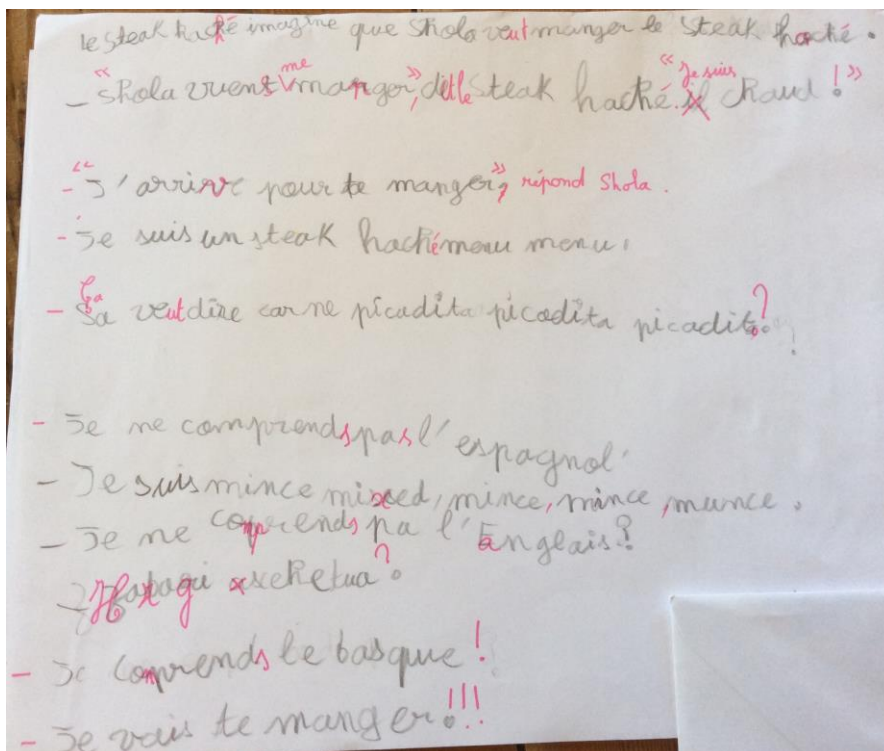 le steak haché imagine que Shola veut manger le steak haché.
- "Shola vient me manger", dit le steak haché. "Je suis chaud !"
- "J'arrive pour te manger", répond Shola.
- Je suis un steak haché menu menu.
- Ça veut dire carne picadita picadita picadito ?
- Je ne comprends pas l'espagnol.
- Je suis mince mixed, mince, mince, mince.
- Je ne comprends pa l'Anglais ?
- Haragi xeketua ?
- Je comprends le basque !
- Je vais te manger !!!